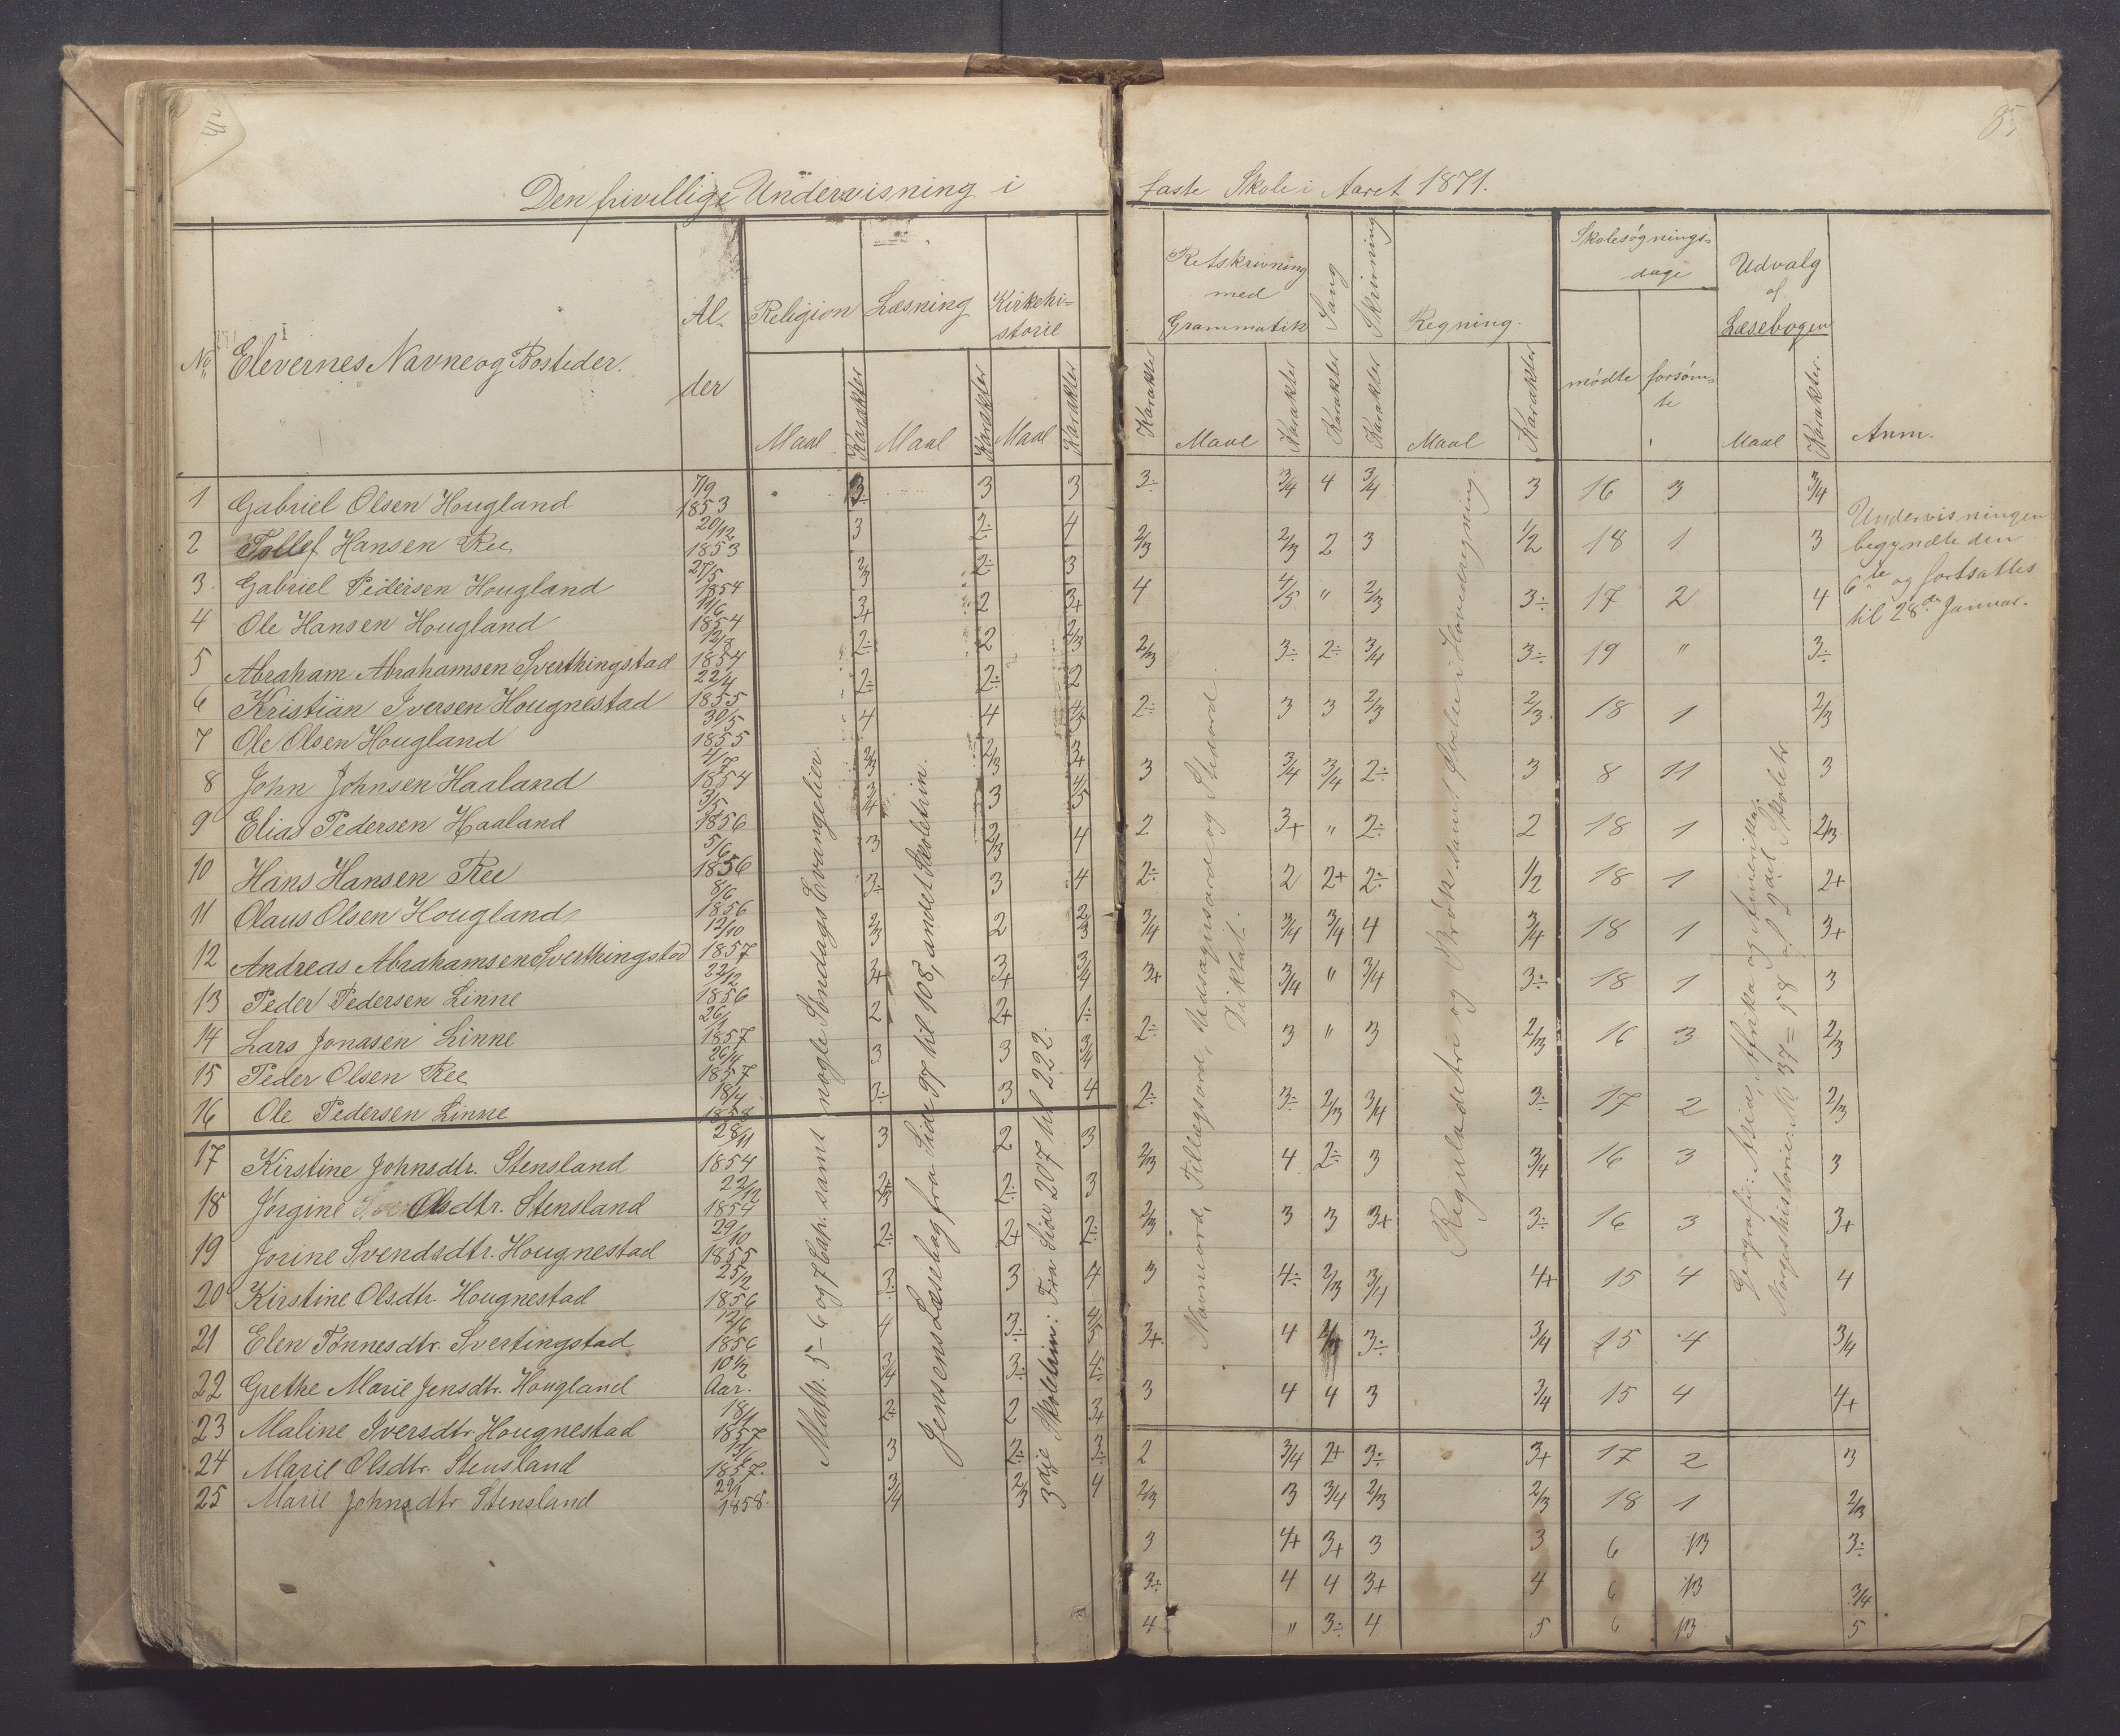 Den frivillige Undervisning i
faste Skole i Aaret 1871.
85
No Elevernes Navne og Bosteder. Al- der Religion Læsning Kirkehi- storie
Maal Karakter Maal Karakter Maal Karakter
1 Gabriel Olsen Hougland 7/9 1853 3÷ 3 3
2 Tollef Hansen Ree 20/12 1853 3 2÷ 4
3 Gabriel Pedersen Hougland 27/5 1854 2/3 2÷ 3
4 Ole Hansen Hougland 11/6 1854 3+ 2 3+
5 Abraham Abrahamsen Sverthingstad 12/8 1854 2÷ 2 2/3
6 Kristian Iversen Hougnestad 22/4 1855 2÷ 2÷ 2
7 Ole Olsen Hougland 30/5 1855 4 4 4/5
8 John Johnsen Haaland 4/7 1854 2/3 2/3 3/4
9 Elias Pedersen Haaland 3/5 1856 3/4 3 4/5
10 Hans Hansen Ree 5/6 1856 3 2/3 4
11 Olaus Olsen Hougland 8/6 1856 3÷ 3 4
12 Andreas Abrahamsen Sverthingstad 12/10 1857 2/3 2 2/3
13 Peder Pedersen Linne 22/12 1856 3+ 3+ 3/4
14 Lars Jonasen Linne 26/1 1857 2 2+ 1÷
15 Peder Olsen Ree 26/4 1857 3 3 3/4
16 Ole Pedersen Linne 18/4 1858 3÷ 3 4
17 Kirstine Johnsdtr. Stensland 28/11 1854 3 2 3
18 Jørgine Olsdtr. Stensland 22/12 1854 2/3 2÷ 3
19 Jorine Svendsdtr. Hougnestad 29/10 1855 2÷ 2+ 2÷
20 Kirstine Olsdtr. Hougnestad 25/2 1856 3÷ 3 4
21 Elen Tønnesdtr. Svertingstad 12/6 1856 4 3÷ 4/5
22 Grethe Marie Jensdtr. Hougland 10 1/2 Aar. 3/4 3÷ 4÷
23 Maline Iversdtr. Hougnestad 18/1 1857 2÷ 2 3+
24 Marie Olsdtr. Stensland 1857. 3 2÷ 3÷
25 Marie Johnsdtr Stensland 29/1 1858. 3/4 2/3 4
Matth. 5-6 og 7 Cap. samt nogle Søndags Evangelier.
Jensens Læsebog fra Side 97 til 108, andet Skoletrin.
3die Skoletrin: Fra Side 207 til 222.
Karakter Retskrivning med Grammatik Sang Skrivning Regning. Skolesøgnings= dage Udvalg af Læsebogen Anm.
Maal Karakter Karakter Karakter Maal Karakter mødte forsøm= te Maal Karakter.
3÷ 3/4 4 3/4 3 16 3 3/4
2/3 2/3 2 3 1/2 18 1 3
4 4/5 " 2/3 3÷ 17 2 4
2/3 3÷ 2÷ 3/4 3÷ 19 " 3÷
2÷ 3 3 2/3 2/3 18 1 2/3
3 3/4 3/4 2÷ 3 8 11 3
2 3+ " 2÷ 2 18 1 2/3
2÷ 2 2+ 2÷ 1/2 18 1 2+
3/4 3/4 3/4 4 3/4 18 1 3+
3+ 3/4 " 3/4 3÷ 18 1 3
2÷ 3 " 3 2/3 16 3 2/3
2÷ 3÷ 2/3 3/4 3÷ 17 2 2/3
2/3 4 2÷ 3 3/4 16 3 3
2/3 3 3 3+ 3÷ 16 3 3+
3 4÷ 2/3 3/4 4+ 15 4 4
3+ 4 3÷ 3/4 15 4 3/4
3 4 4 3 3/4 15 4 4+
2 3/4 2+ 3÷ 3+ 17 2 3
2/3 3 3/4 2/3 2/3 18 1 2/3
3 4+ 3+ 3 3 6 13 3÷
3÷ 4 4 3+ 4 6 13 3/4
4 " 3÷ 4 5 6 13 5
Navneord, Tillægsord, Udsagnsord og Stedord.
Diktat.
Reguladetri og Brøk samt Øvelse i Hovedregning
Geografi: Asia, Afrika og Amerika.
Norgeshistorie: No 37 = 58 af 2det Skoletr.
Undervisningen
begyndte den
6te og fortsattes
til 28de Januar.